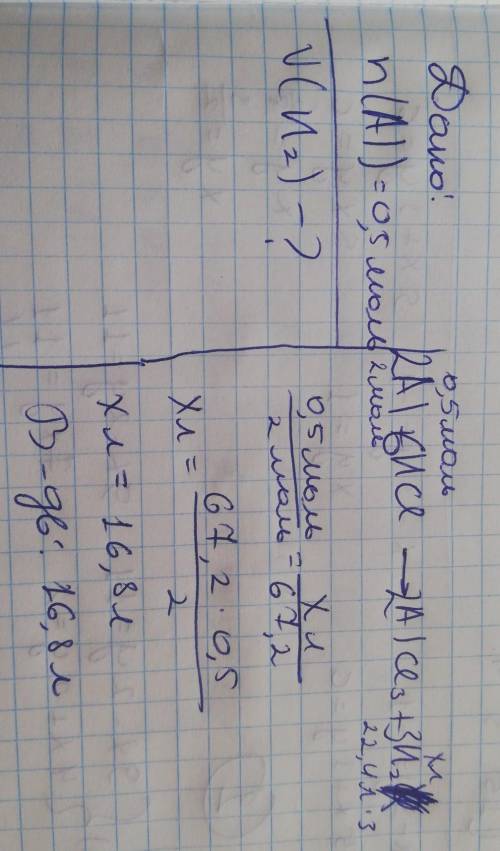 Дано:
n(Al) = 0,5 моль
V(H₂) - ?
0,5 моль x л
2Al + 6HCl → 2AlCl₃ + 3H₂
2 моль 22,4 л · 3
0,5 моль / 2 моль = x л / 67,2
x л = 67,2 · 0,5 / 2
x л = 16,8 л
В-дь: 16,8 л